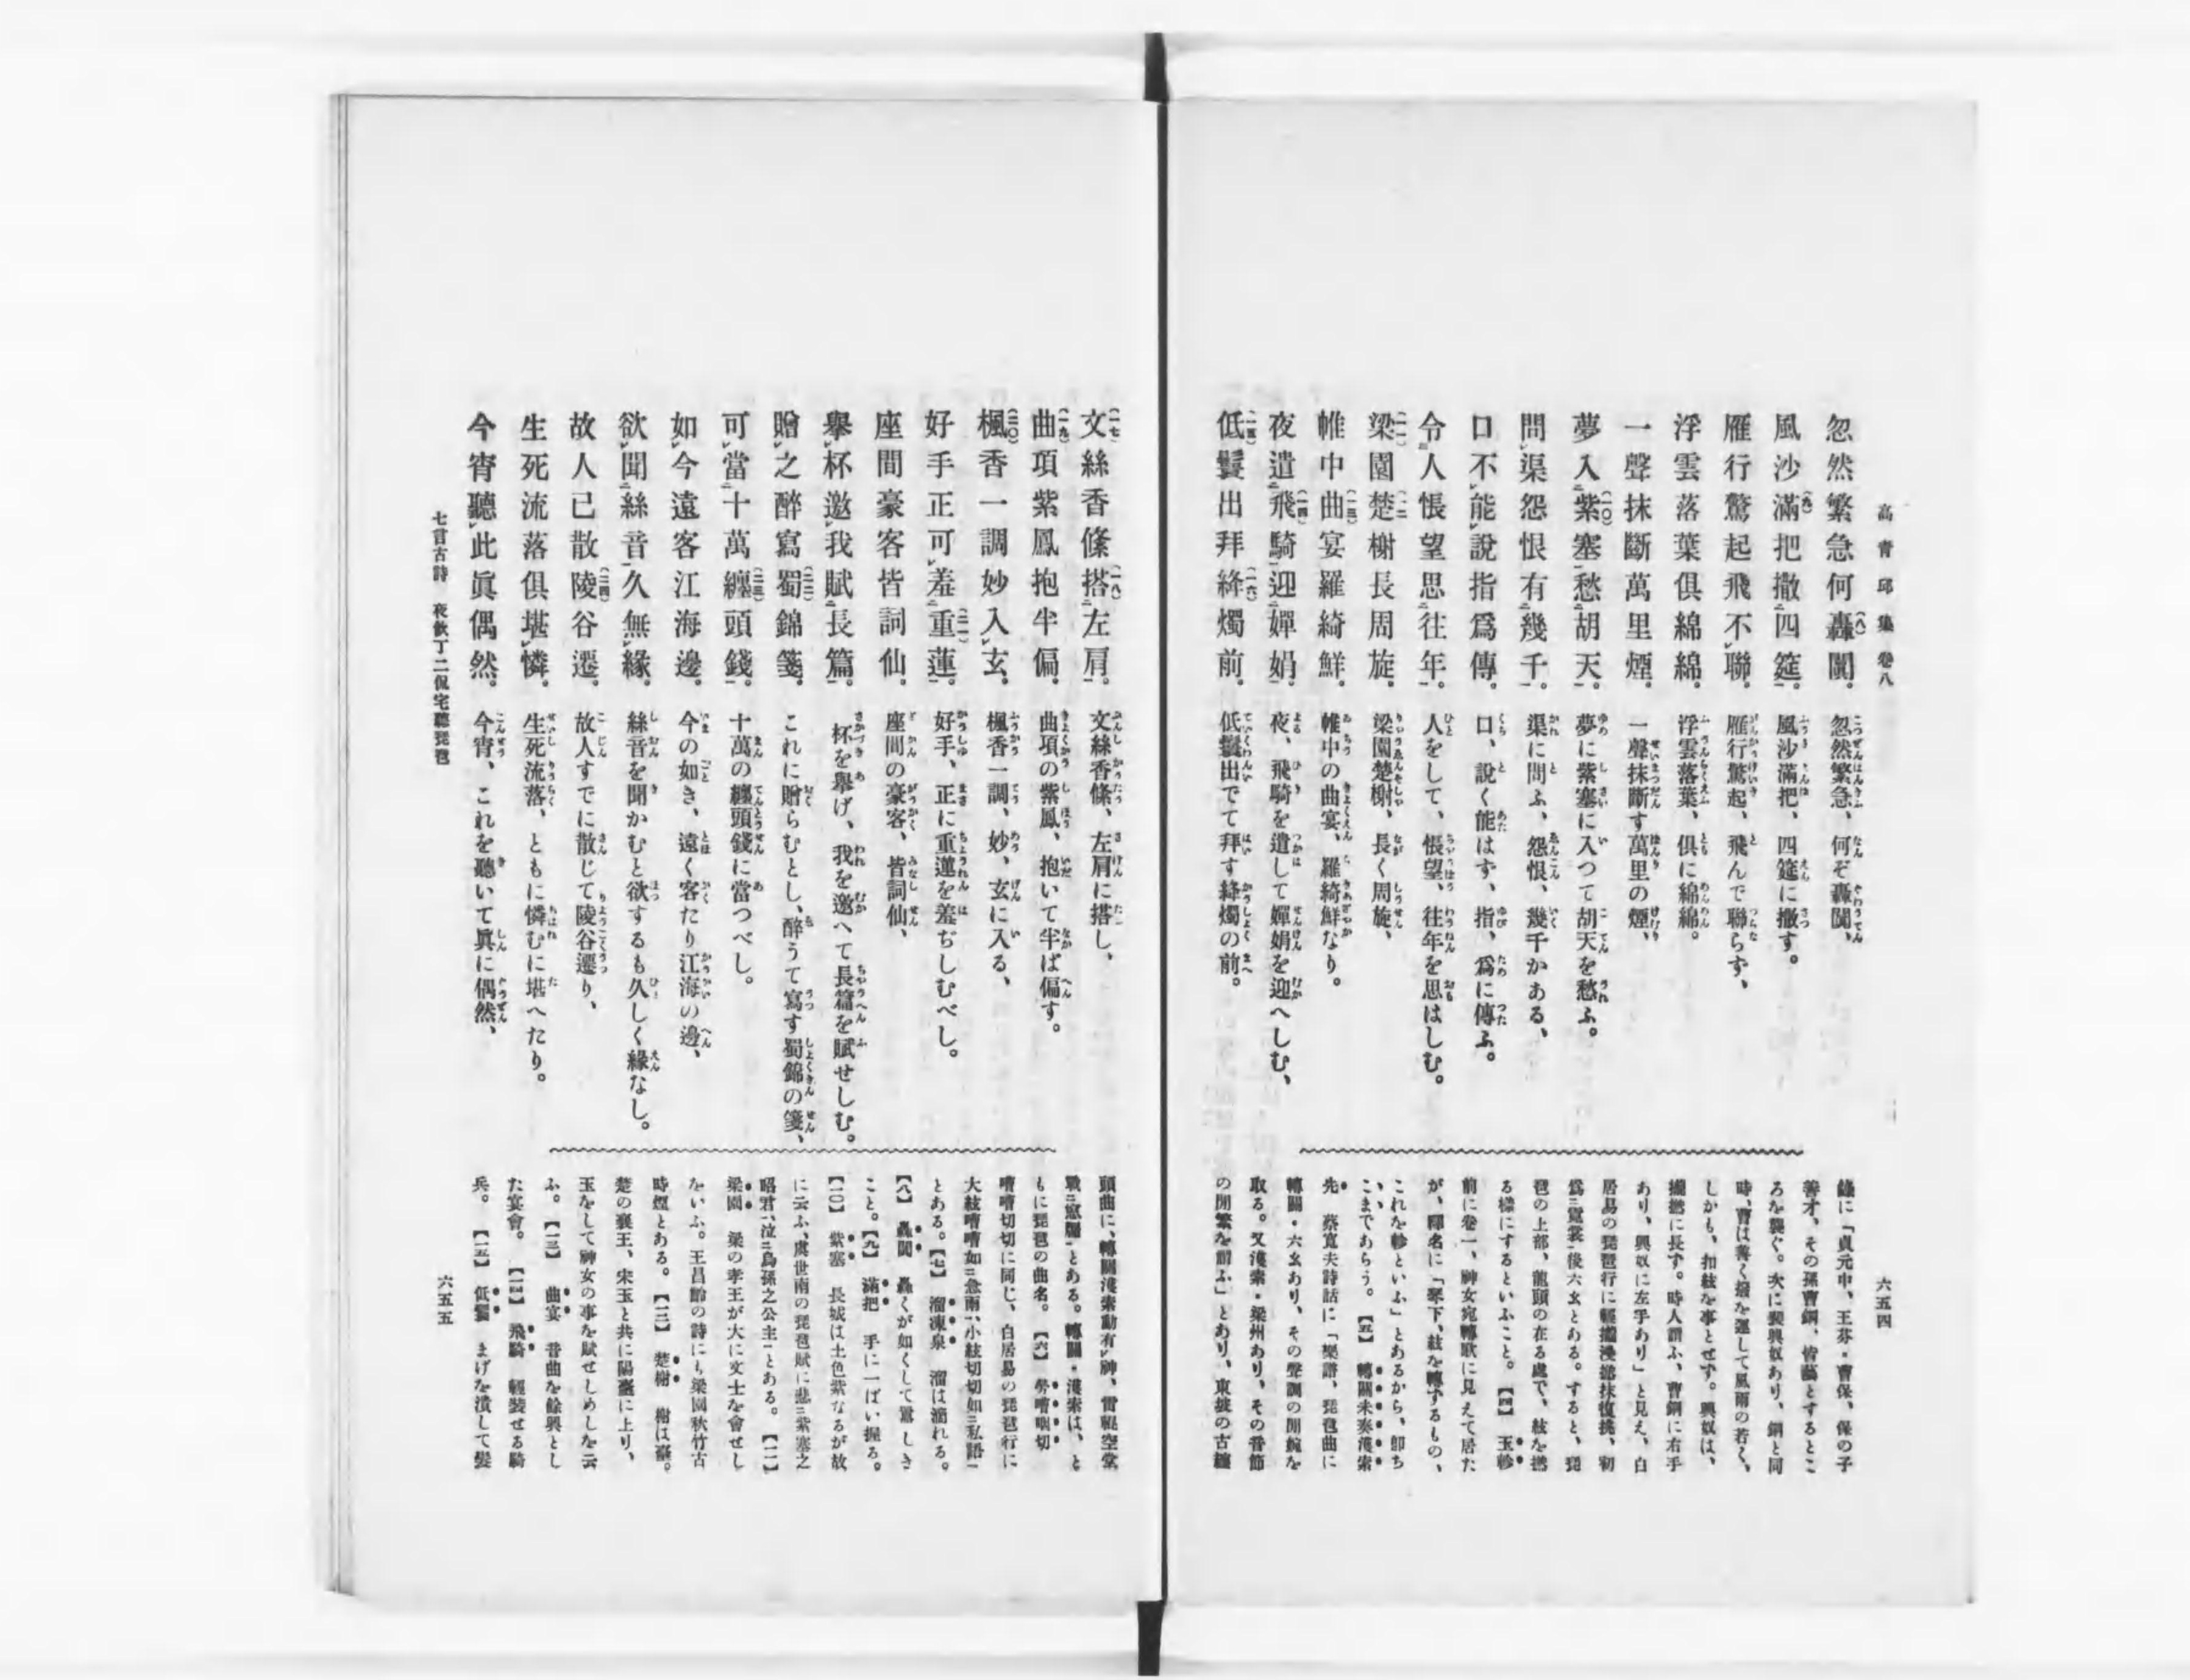 高青邱集 卷八
六五四
忽然繁急何轟闐。
風沙滿把撒四筵。
雁行驚起飛不聯。
浮雲落葉俱綿綿。
一聲抹斷萬里煙。
夢入紫塞愁胡天。
問渠怨恨有幾千。
口不能說指爲傳。
令人悵望思往年。
梁園楚榭長周旋。
帷中曲宴羅綺鮮。
夜遣飛騎迎嬋娟。
低鬟出拜絳燭前。
忽然繁急、何ぞ轟闐、
風沙滿把、四筵に撒す。
雁行驚起、飛んで聯らず、
浮雲落葉、俱に綿綿。
一聲抹斷す萬里の煙、
夢に紫塞に入つて胡天を愁ふ。
渠に問ふ、怨恨、幾千かある、
口、說く能はず、指、爲に傳ふ。
人をして、悵望、往年を思はしむ。
梁園楚榭、長く周旋、
帷中の曲宴、羅綺鮮なり。
夜、飛騎を遣して嬋娟を迎へしむ、
低鬟出でて拜す絳燭の前。
錄に「貞元中、王芬・曹保、保の子
善才、その孫曹鋼、皆藝とするとこ
ろを襲ぐ。次に裴興奴あり、鋼と同
時、曹は善く撥を運して風雨の若く、
しかも、扣絃を事とせず。興奴は、
攏撚に長ず。時人謂ふ、曹鋼に右手
あり、興奴に左手あり」と見え、白
居易の琵琶行に輕攏慢撚抹復挑、初
爲霓裳後六幺とある。すると、琵
琶の上部、龍頭の在る處で、絃を撚
る樣にするといふこと。【四】 玉軫
前に卷一、神女宛轉歌に見えて居た
が、釋名に「琴下、絃を轉ずるもの、
これを軫といふ」とあるから、卽ち
こまであらう。【五】 轉關未奏濩索
先 蔡寬夫詩話に「樂譜、琵琶曲に
轉關・六幺あり、その聲調の閒婉を
取る。又濩索・梁州あり、その音節
の閒繁を謂ふ」とあり、東坡の古纏
文絲香絛搭左肩。
曲項紫鳳抱半偏。
楓香一調妙入玄。
好手正可羞重蓮。
座間豪客皆詞仙。
擧杯邀我賦長篇。
贈之醉寫蜀錦箋。
可當十萬纏頭錢。
如今遠客江海邊。
欲聞絲音久無緣。
故人已散陵谷遷。
生死流落俱堪憐。
今宵聽此眞偶然。
文絲香絛、左肩に搭し、
曲項の紫鳳、抱いて半ば偏す。
楓香一調、妙、玄に入る、
好手、正に重蓮を羞ぢしむべし。
座間の豪客、皆詞仙、
杯を擧げ、我を邀へて長篇を賦せしむ。
これに贈らむとし、醉うて寫す蜀錦の箋、
十萬の纏頭錢に當つべし。
今の如き、遠く客たり江海の邊、
絲音を聞かむと欲するも久しく緣なし。
故人すでに散じて陵谷遷り、
生死流落、ともに憐むに堪へたり。
今宵、これを聽いて眞に偶然、
頭曲に、轉關濩索動有神、雷輥空堂
戰窓牖とある。轉關・濩索は、と
もに琵琶の曲名。【六】 勞嘈咽切
嘈嘈切切に同じ、白居易の琵琶行に
大絃嘈嘈如急雨、小絃切切如私語
とある。【七】 溜凍泉 溜は滴れる。
【八】 轟闐 轟くが如くして囂しき
こと。【九】 滿把 手に一ぱい握る。
【一〇】 紫塞 長城は土色紫なるが故
に云ふ、虞世南の琵琶賦に悲紫塞之
昭君、泣烏孫之公主とある。【一一】
梁園 梁の孝王が大に文士を會せし
をいふ。王昌齡の詩にも梁園秋竹古
時煙とある。【一二】 楚榭 榭は臺。
楚の襄王、宋玉と共に陽臺に上り、
玉をして神女の事を賦せしめしを云
ふ。【一三】 曲宴 音曲を餘興とし
た宴會。【一四】 飛騎 輕裝せる騎
兵。【一五】 低鬟 まげを潰して髮
七言古詩 夜飮丁二侃宅聽琵琶
六五五